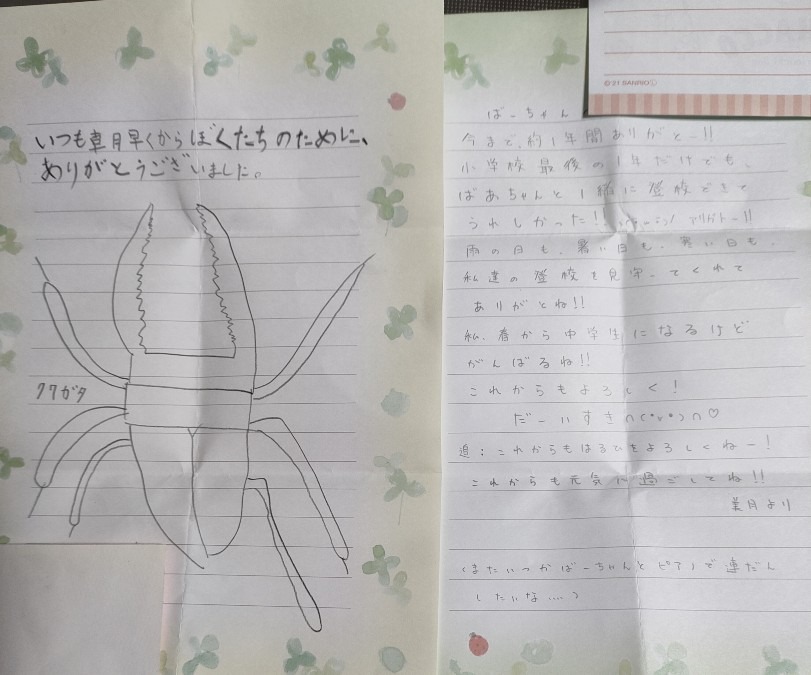 いつも草月早くからぼくたちのために、
ありがとうございました。
クワガタ
© '21 SANRIO
ばーちゃん
今まで、約1年間ありがとー!!
小学校最後の1年だけども、
ばあちゃんと1緒に登校できて
うれしかった! アリガトー!!
雨の日も、暑い日も、寒い日も、
私達の登校を見守ってくれて
ありがとね!!
私、春から中学生になるけど
がんばるね!!
これからもよろしく!
だーいすき∩(°v°)∩♡
追:これからもはるひをよろしくねー!
これからも元気に過ごしてね!!
美月より
(またいつかばーちゃんとピアノで連だん
したいな....)